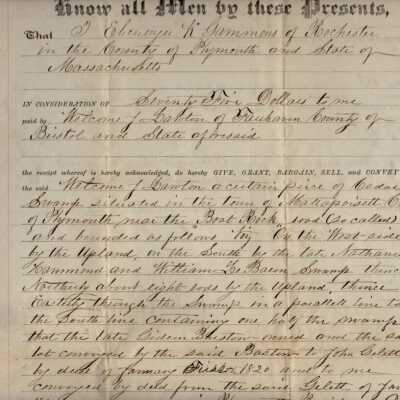 Know all Men by these Presents,
That I Ebenezer K Gammons of Rochester
in the County of Plymouth and State of
Massachusetts
IN CONSIDERATION OF Seventy Five Dollars to me
paid by Welcome J Lawton of Fairhaven County of
Bristol and State aforesaid
the receipt whereof is hereby acknowledged, do hereby GIVE, GRANT, BARGAIN, SELL, and CONVEY
the said Welcome J Lawton a certain piece of Cedar
Swamp situated in the town of Mattapoisett C
of Plymouth near the "Boat Rock" (so called)
and bounded as follows viz On the West side
by the Upland, on the South by the late Nathan
Hammond and William LeBaron Swamp thenc
Northerly about eight rods by the Upland thence
Easterly through the Swamp in a parallell line to
the South line containing one half the swamp
that the late Gideon Barstow owned and the sa
lot conveyed by the said Bastow to John Gelett
by deed of January First 1820 and to me
conveyed by deed from the said Gelett of Jan